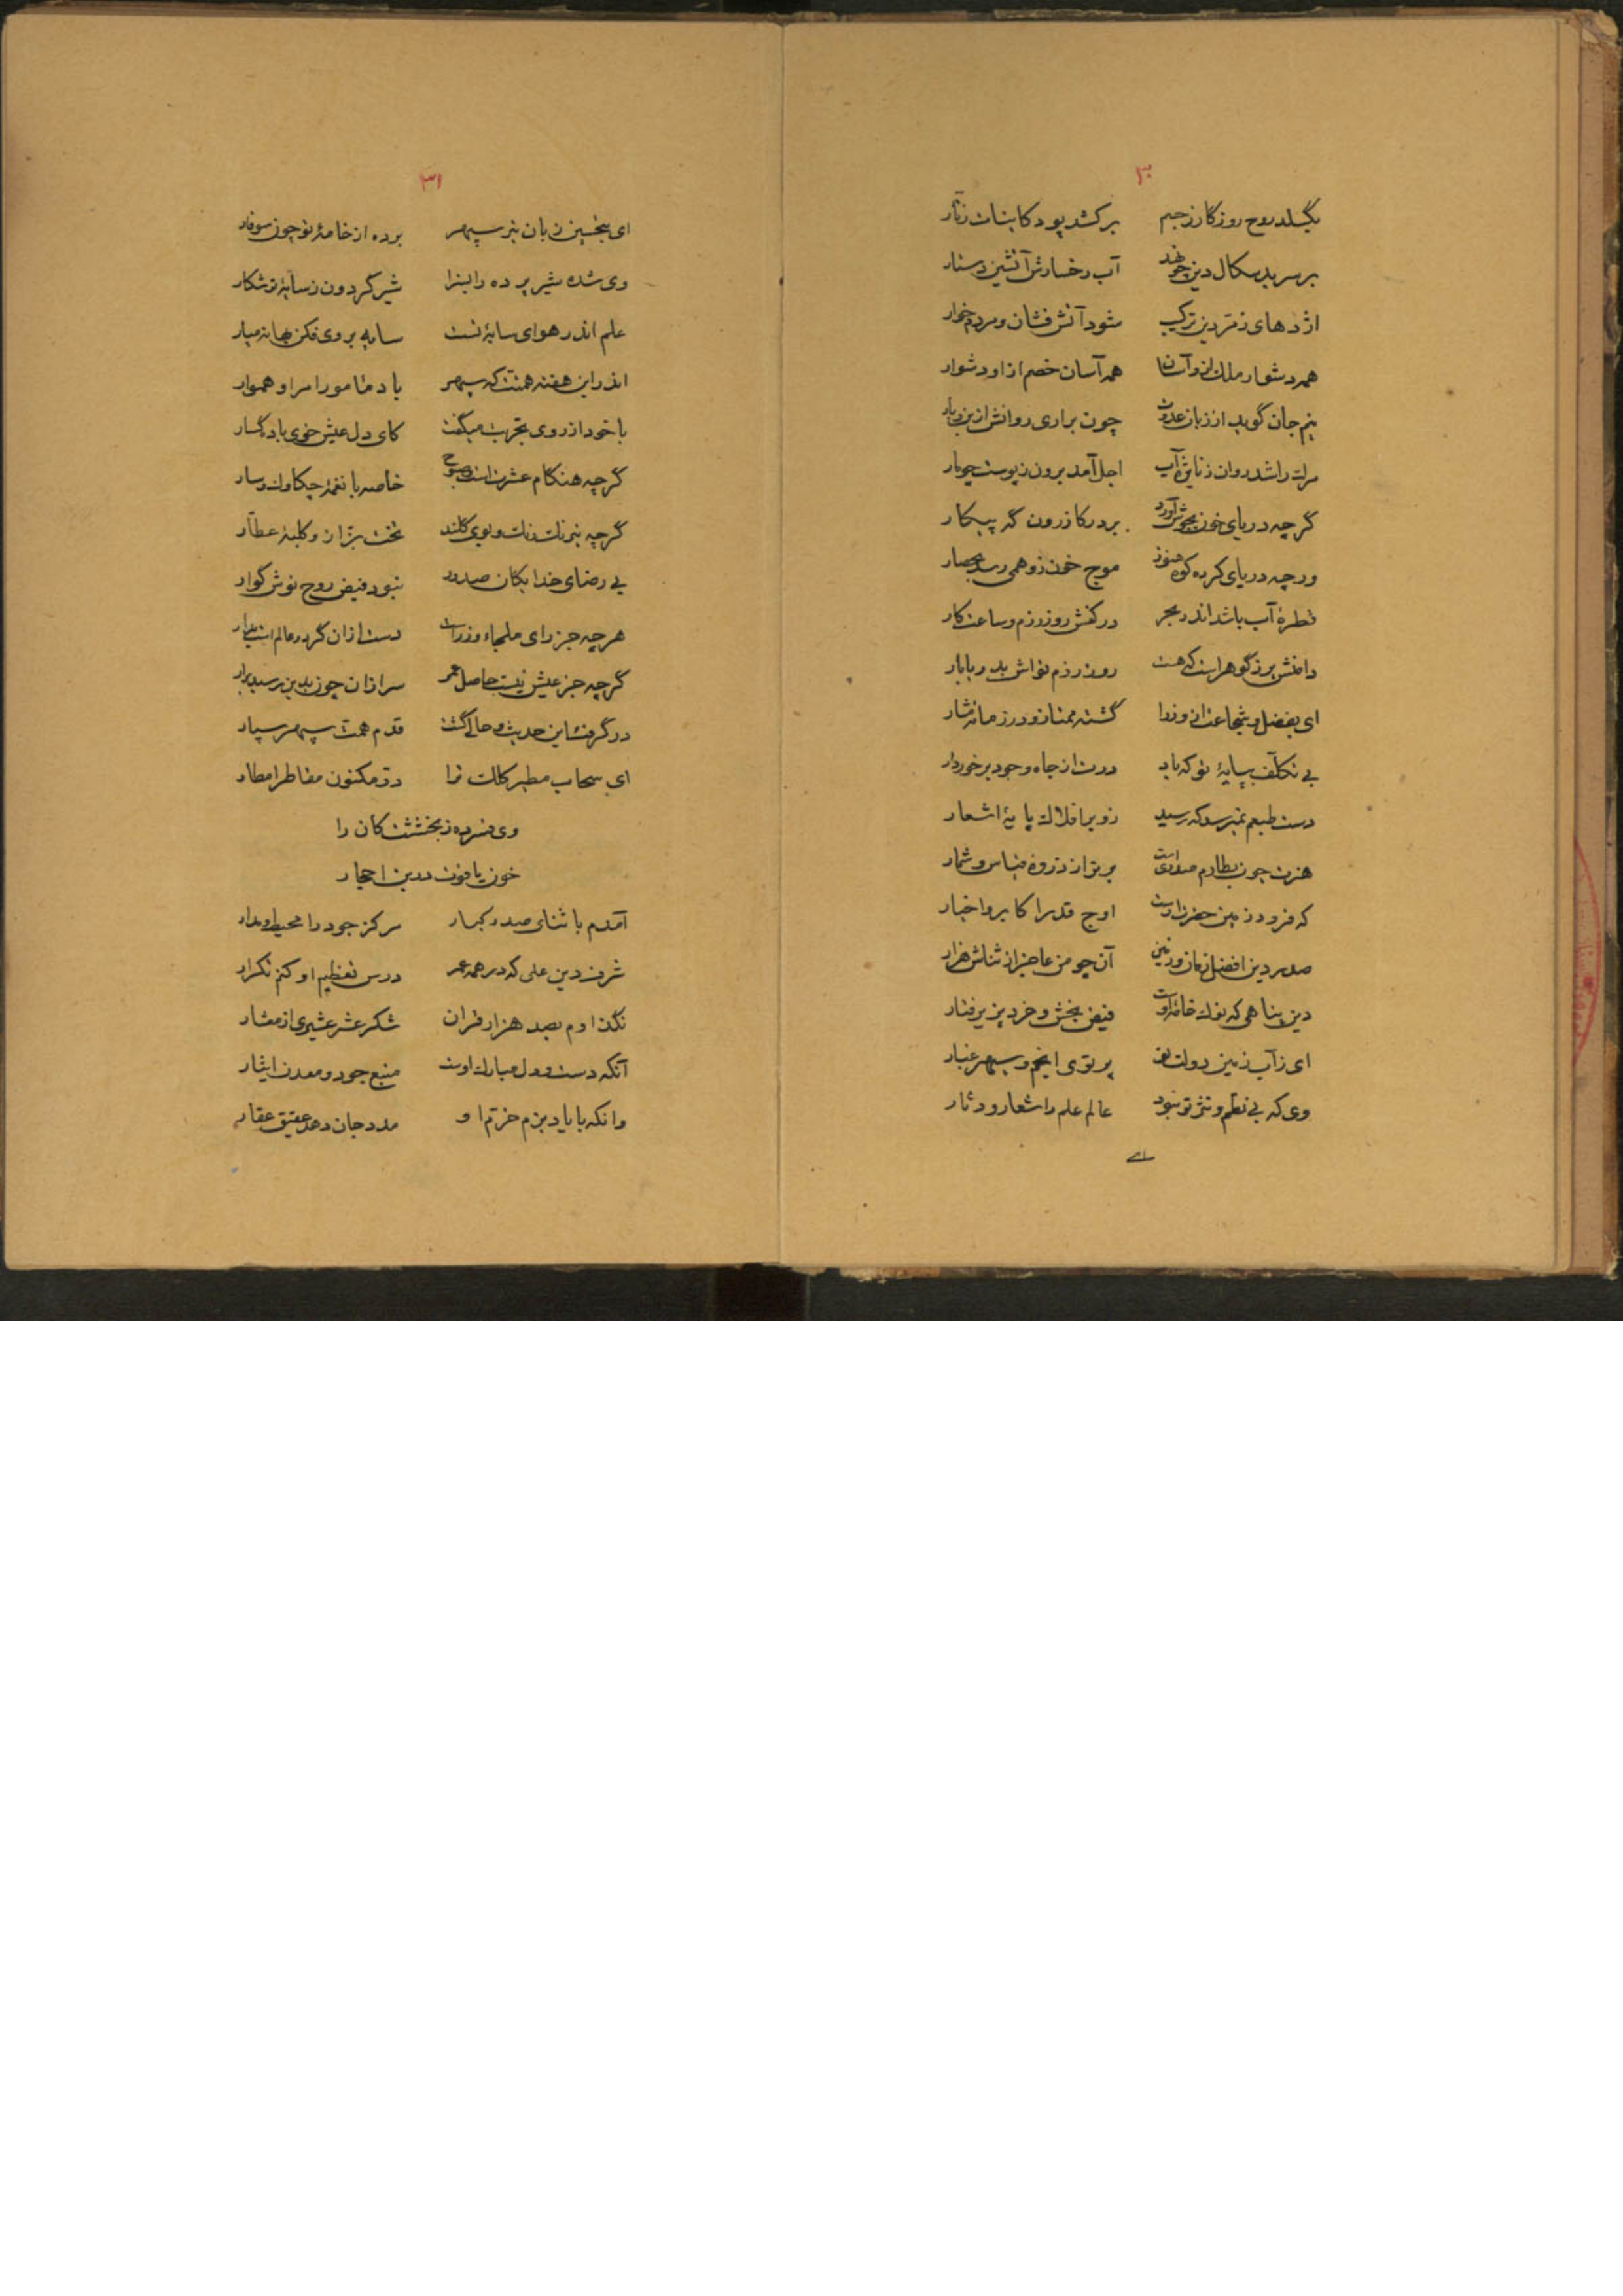 ۳۰
بگسلد روح روزگار ز جسم برکشد پود کاینات ز تار
بر سر بدسگال دین چو نهد آب رخسارش آتشین دستار
اژدهای زمردین ترکیب شود آتش فشان و مردم خوار
همه دشوار ملک ازو آسان همه آسان خصم از او دشوار
نیم جان گوید از زبان عدوت چون براری روانش از بن بار
مرگ را شد روان ز تابش آب اجل آمد برون ز پوست چو مار
گرچه دریای خون بجوش آورد بر در کازرون گه پیکار
ورچه دریای کرده کوه هنوز موج خون زو همی رسد بحصار
قطرهٔ آب باشد اندر بحر در کفش روز رزم و ساعت کار
دامنش پر ز گوهر است که هست روز رزم تواش بد و بابار
ای بفضل و شجاعت از وزرا گشته ممتاز و در زمانه مشار
بی تکلف بپایهٔ تو که باد درت از جاه و جود برخوردار
دست طبعم نمیرسد که رسید زو بر افلاک پایهٔ اشعار
هنرت چون بطارم صدری است برتر از ذروه قیاس و شمار
که فزود زمین حضرت اوست اوج قدر اکابر و اخیار
صدر دین افضل زمان و زمین آن چو من عاجز از ثناش هزار
دین پناهی که نوک خامهٔ اوست فیض بخش و خرد پذیر فتار
ای ز آب زمین دولت تو پرتوی انجم و سپهر غبار
وی که بی نظم و نثر تو نبود عالم علم را شعار و دثار
ای
۳۱
ای بتحسین زبان تیر سپهر برده از خامهٔ تو چون سوفار
وی شده شیر پرده را بنزا شیر گردون ز سایهٔ تو شکار
علم اندر هوای سایهٔ تست سایه بر وی فکن بهانه میار
اندر این هفته همتت که سپهر باد مامور امر او هموار
با خود از روی تجربت میگفت کای دل عیش خوی باده گسار
گرچه هنگام عشرت است و صبوح خاصه با نغمهٔ چکاوک و سار
گرچه نیرنگ رنگ و بوی گلند تخت بزاز و کلبهٔ عطار
بی رضای خدایگان صدور نبود فیض روح نوش گوار
هرچه جز رای ملجاء وزراست دست ازان گر در عالم است بدار
گرچه جز عیش نیست حاصل عمر سر ازان چون بدین رسید برار
درگرفت این حدیث و حالی گشت قدم همت سپهر سپار
ای سحاب مطیر کلک ترا در مکنون مقاطر امطار
وی فسرده ز بخششت کان را
خون یاقوت در بن احجار
آمدم با ثنای صدر کبار مرکز جود را محیط و مدار
شرف دین علی که در همه عمر درس تعظیم او کنم تکرار
نگذارم بصد هزار قران شکر عشر عشیری از معشار
آنکه دست و دل مبارک اوست منبع جود و معدن ایثار
وانکه با یاد بزم خرم او مدد جان دهد عقیق عقار